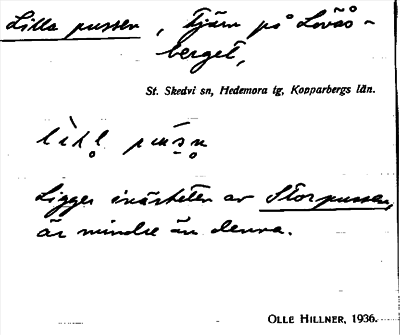 Lilla pussen, Tjärn på Lövås-
berget,
St. Skedvi sn, Hedemora tg, Kopparbergs län.
Ligger i närheten av Storpussen,
är mindre än denna.
OLLE HILLNER, 1936.